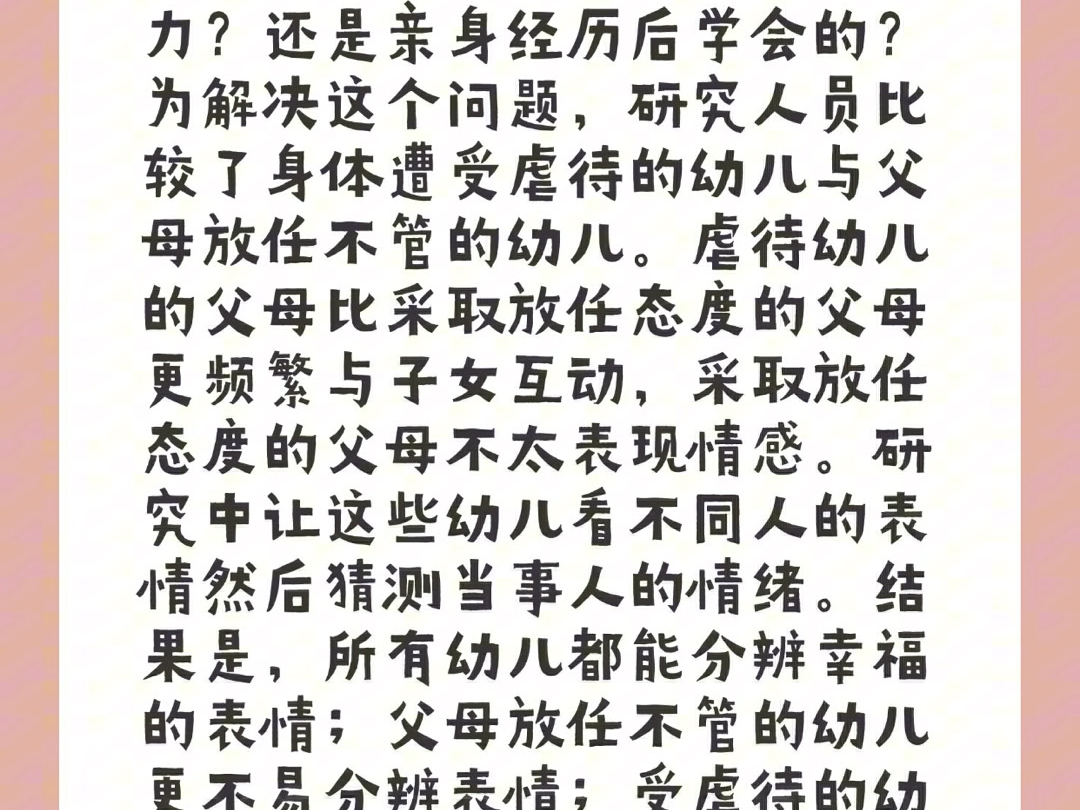 力？还是亲身经历后学会的？
为解决这个问题，研究人员比
较了身体遭受虐待的幼儿与父
母放任不管的幼儿。虐待幼儿
的父母比采取放任态度的父母
更频繁与子女互动，采取放任
态度的父母不太表现情感。研
究中让这些幼儿看不同人的表
情然后猜测当事人的情绪。结
果是，所有幼儿都能分辨幸福
的表情；父母放任不管的幼儿
更不易分辨表情；受虐待的幼